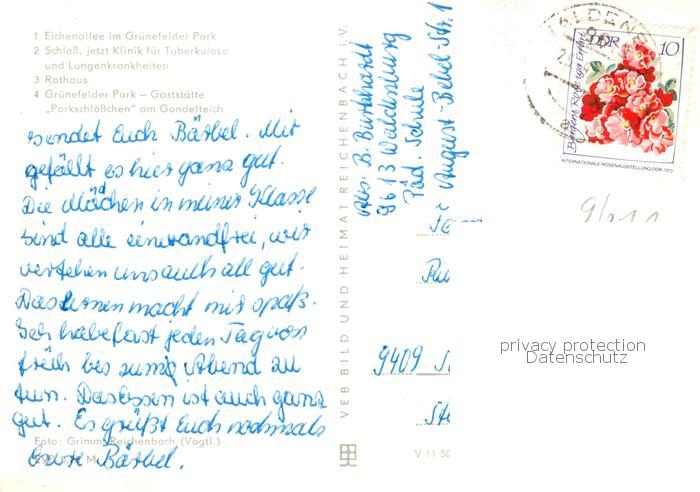 1 Eichenallee im Grünefelder Park
2 Schloß, jetzt Klinik für Tuberkulose
und Lungenkrankheiten
3 Rathaus
4 Grünefelder Park – Gaststätte
„Parkschlößchen" am Gondelteich
sendet Euch Bärbel. Mir
gefällt es hier ganz gut.
Die Mädchen in meiner Klasse
sind alle einwandfrei, wir
verstehen uns auch all gut.
Das Lernen macht mir spaß.
Ich habe fast jeden Tag von
früh bis zum Abend zu
tun. Das Essen ist auch ganz
gut. Es grüßt Euch nochmals
Eure Bärbel.
Foto: Grimm, Reichenbach (Vogtl.)
VEB BILD UND HEIMAT REICHENBACH I. V.
V 11 50
Abs. B. Burkhardt
9613 Waldenburg
Päd. Schule
August-Bebel Str. 1
9409
DDR 10
Berger's Rose aus Erfurt
INTERNATIONALE ROSENAUSSTELLUNG DDR 1972
WALDENB
9/211
privacy protection
Datenschutz